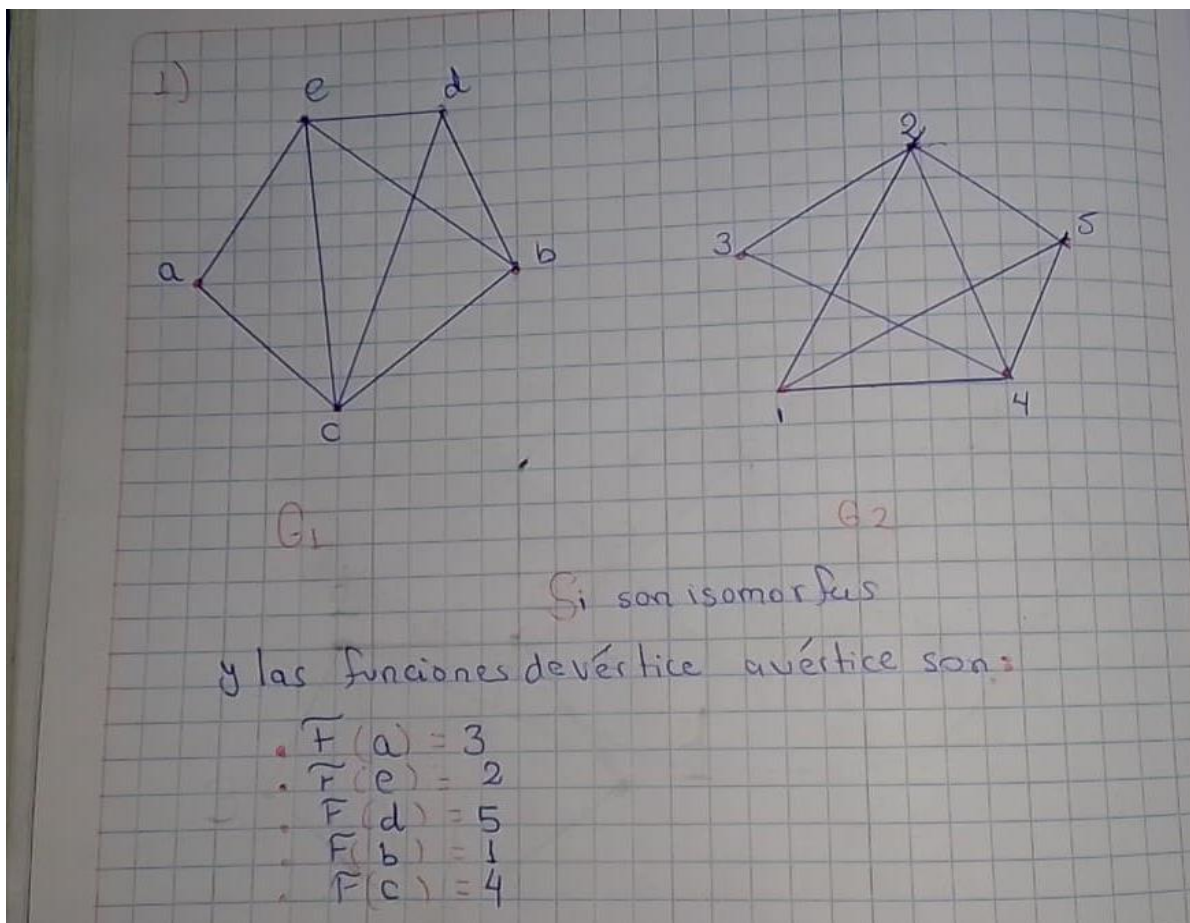 1)
e
d
a
b
c
2
3
5
1
4
G1
G2
Si son isomorfas
y las funciones de vértice a vértice son:
. F(a) = 3
. F(e) = 2
. F(d) = 5
. F(b) = 1
. F(c) = 4